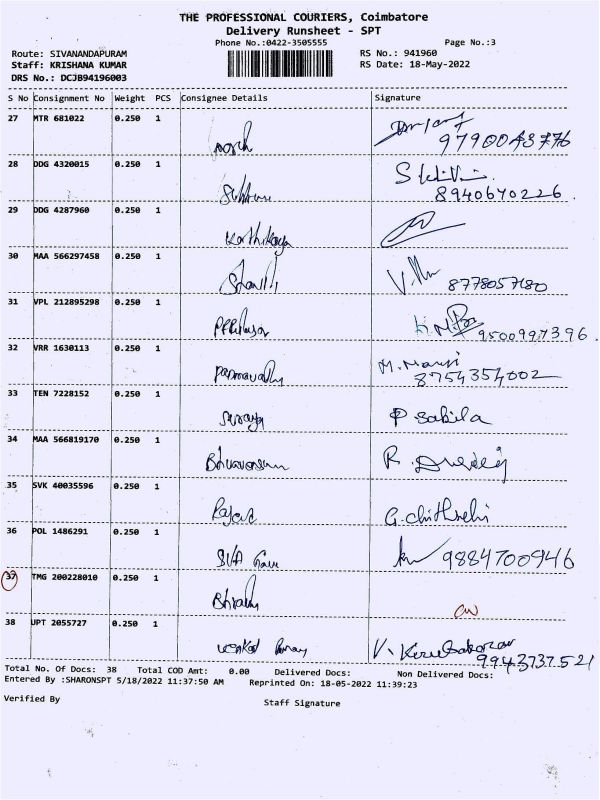 THE PROFESSIONAL COURIERS, Coimbatore
Delivery Runsheet - SPT
Phone No.:0422-3505555 Page No.:3
Route: SIVANANDAPURAM RS No.: 941960
Staff: KRISHANA KUMAR RS Date: 18-May-2022
DRS No.: DCJB94196003
S No Consignment No Weight PCS Consignee Details Signature
27 MTR 681022 0.250 1
9790043776
28 DDG 4320015 0.250 1
8940670226
29 DDG 4287960 0.250 1
Karthikaya
30 MAA 566297458 0.250 1
8778057180
31 VPL 212895298 1
9500997396
32 VRR 1630113 0.250 1
Padmavathy M. Mani
8754354002
33 TEN 7228152 0.250 1
P Sakila
34 MAA 566819170 0.250 1
R.
35 SVK 40035596 0.250 1
G. Chithrehi
36 POL 1486291 0.250 1
SIVA 9884700946
37 TMG 200228010 0.250 1
38 UPT 2055727 0.250 1
Venkat V. Kirubakaran
9943737521
Total No. Of Docs: 38 Total COD Amt: 0.00 Delivered Docs: Non Delivered Docs:
Entered By :SHARONSPT 5/18/2022 11:37:50 AM Reprinted On: 18-05-2022 11:39:23
Verified By Staff Signature